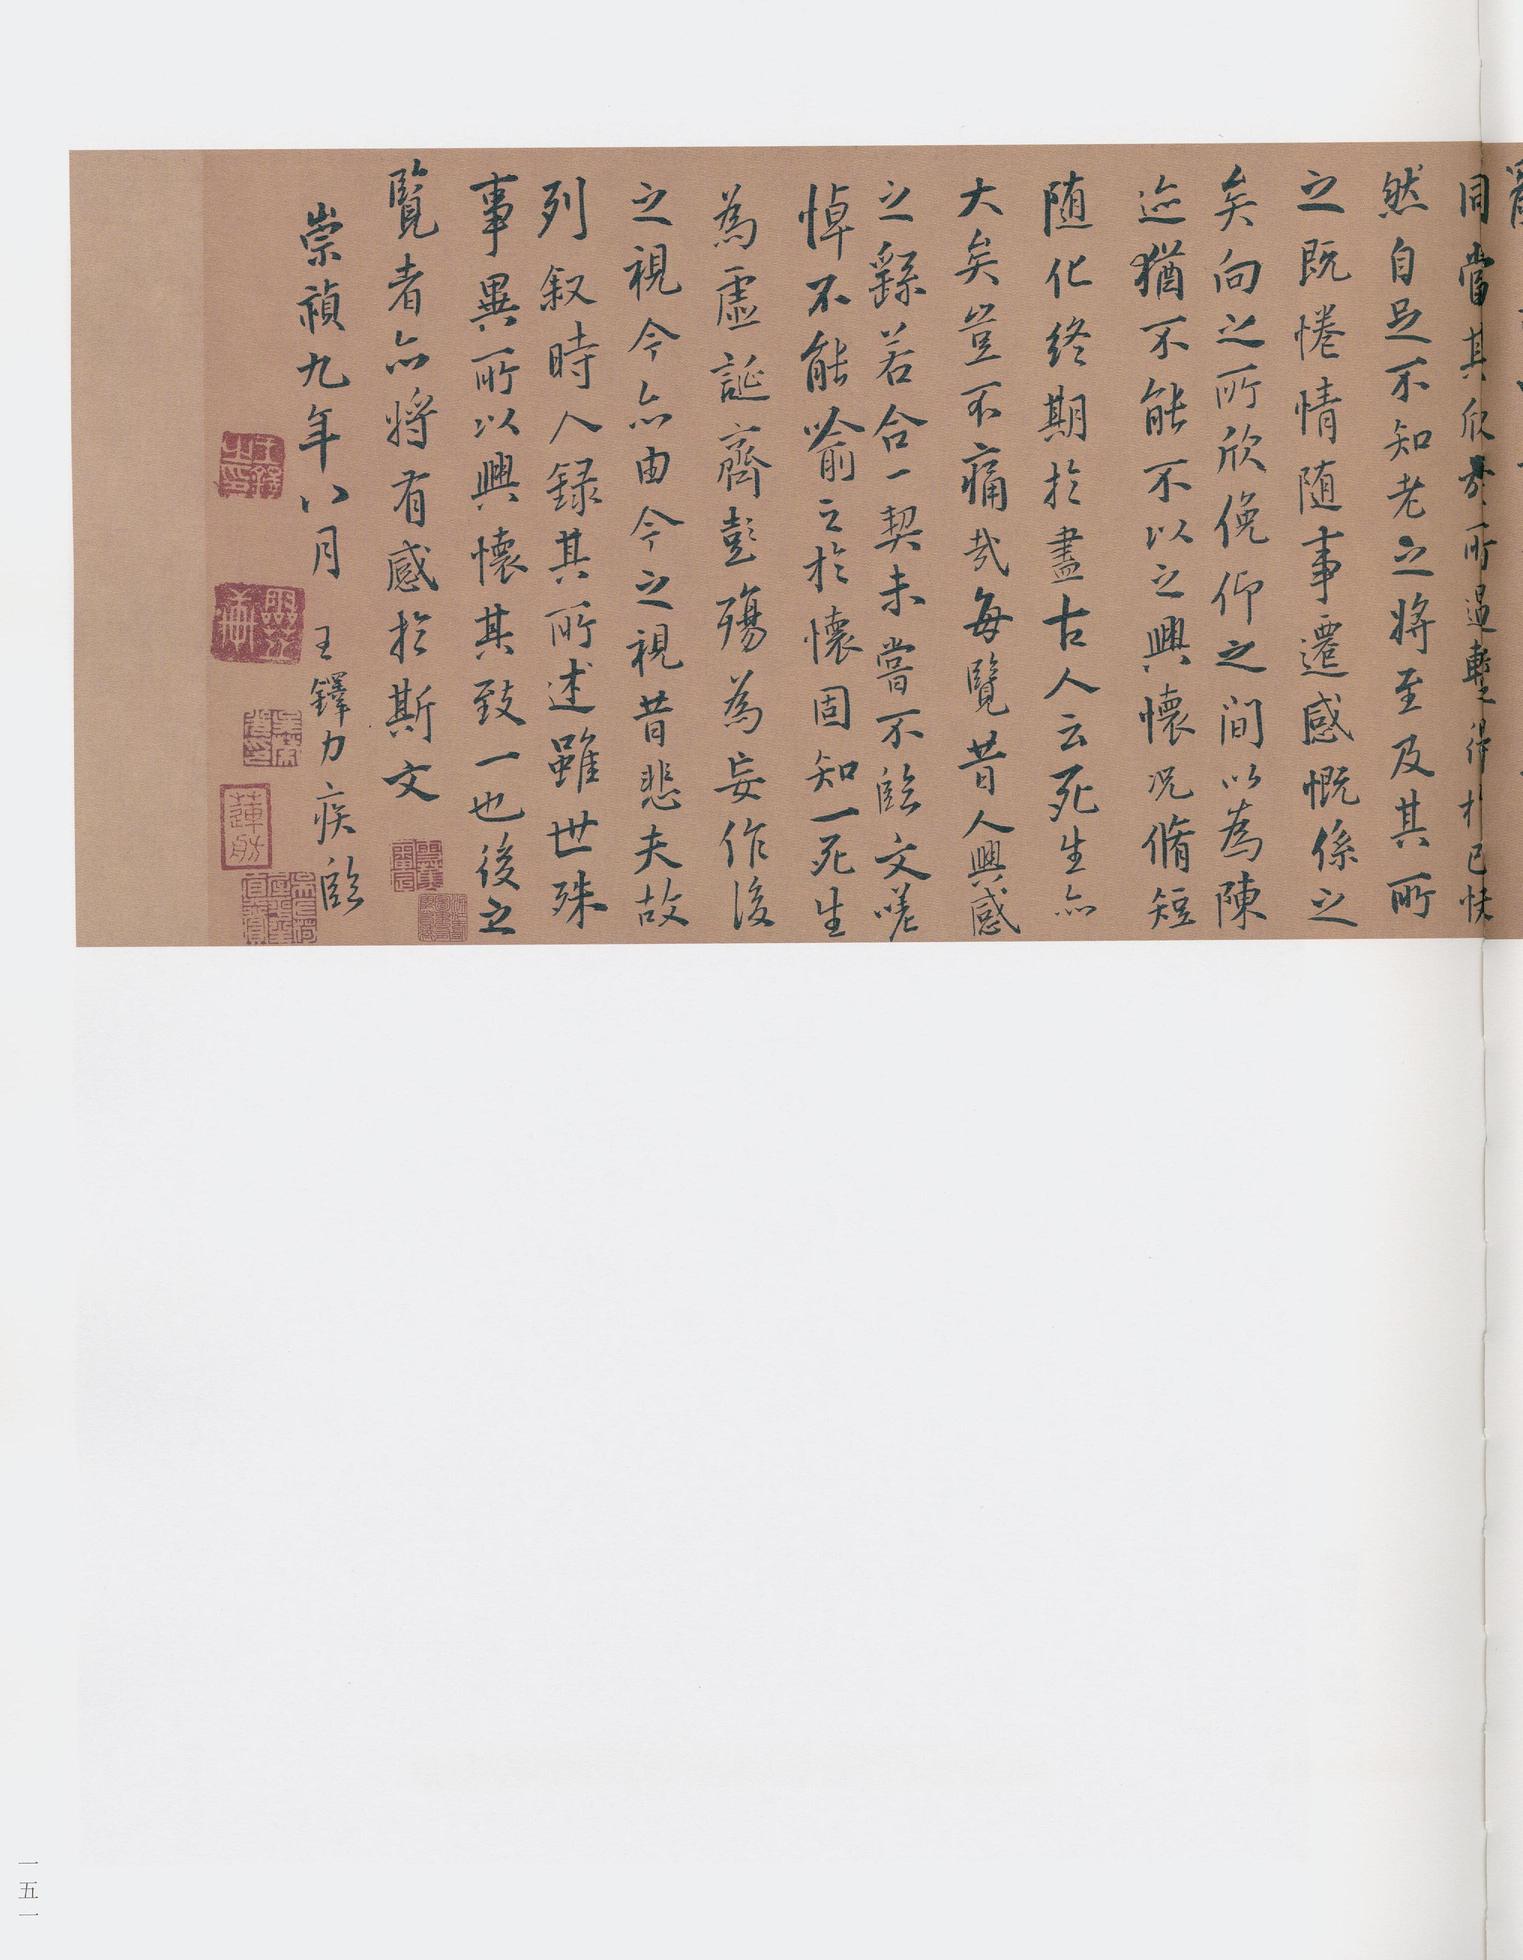 同當其欣於所遇蹔得於己怏
然自足不知老之將至及其所
之既惓情随事遷感慨係之
矣向之所欣俛仰之間以為陳
迹猶不能不以之興懷况脩短
随化終期於盡古人云死生亦
大矣豈不痛哉每覽昔人興感
之繇若合一契未嘗不臨文嗟
悼不能喻之於懷固知一死生
為虛誕齊彭殤為妄作後
之視今亦由今之視昔悲夫故
列叙時人録其所述雖世殊
事異所以興懷其致一也後之
覽者亦将有感於斯文
崇禎九年八月 王鐸力疾臨
王鐸之印
蓮舫
一五一